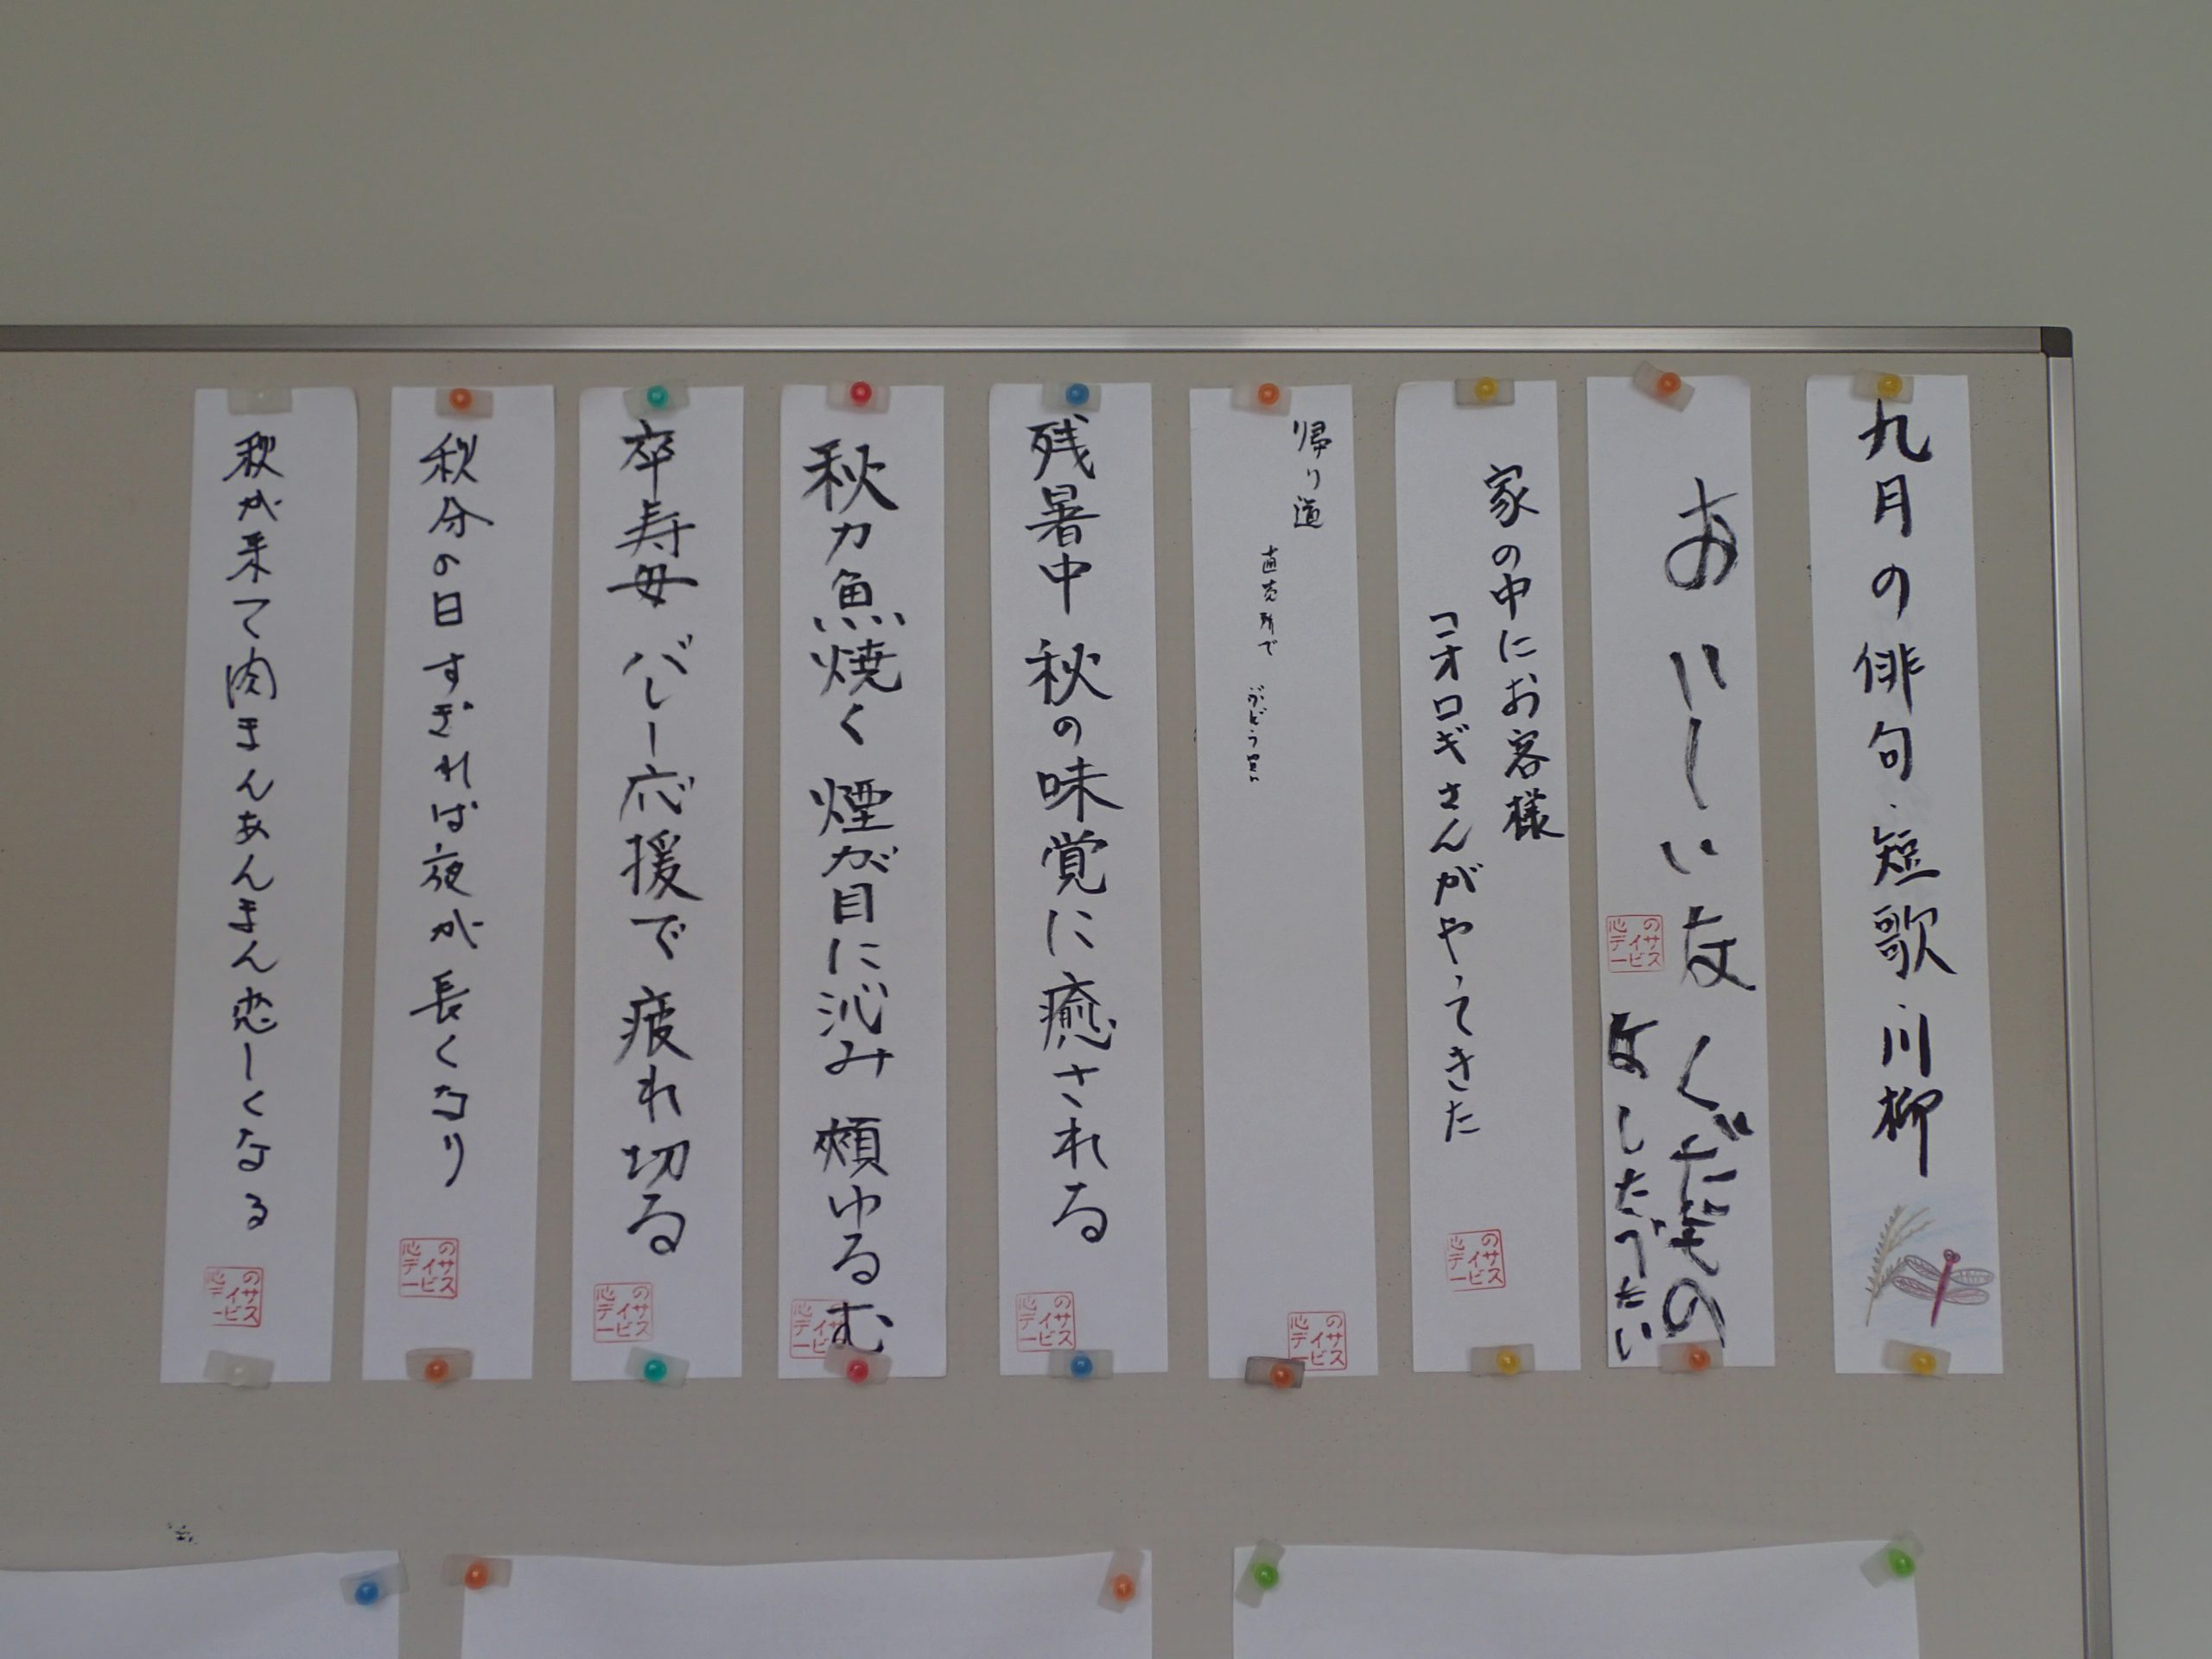 九月の俳句・短歌・川柳
おいしいな くだもの
なしたべたい
心のデイサービス
家の中にお客様
コオロギさんがやってきた
心のデイサービス
帰り道
直売所で
ぶどう買い
心のデイサービス
残暑中 秋の味覚に癒される
心のデイサービス
秋刀魚焼く 煙が目に沁み 頬ゆるむ
心のデイサービス
卒寿母 バレー応援で 疲れ切る
心のデイサービス
秋分の日 すぎれば夜が 長くなり
心のデイサービス
秋が来て肉まんあんまん恋しくなる
心のデイサービス